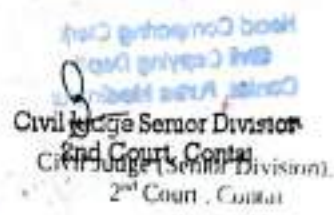 Head Comparing Clerk
Civil Copying Dept
Contai, Purba Medinipur
Civil Judge Senior Division
2nd Court, Contai
Civil Judge (Senior Division),
2nd Court, Contai